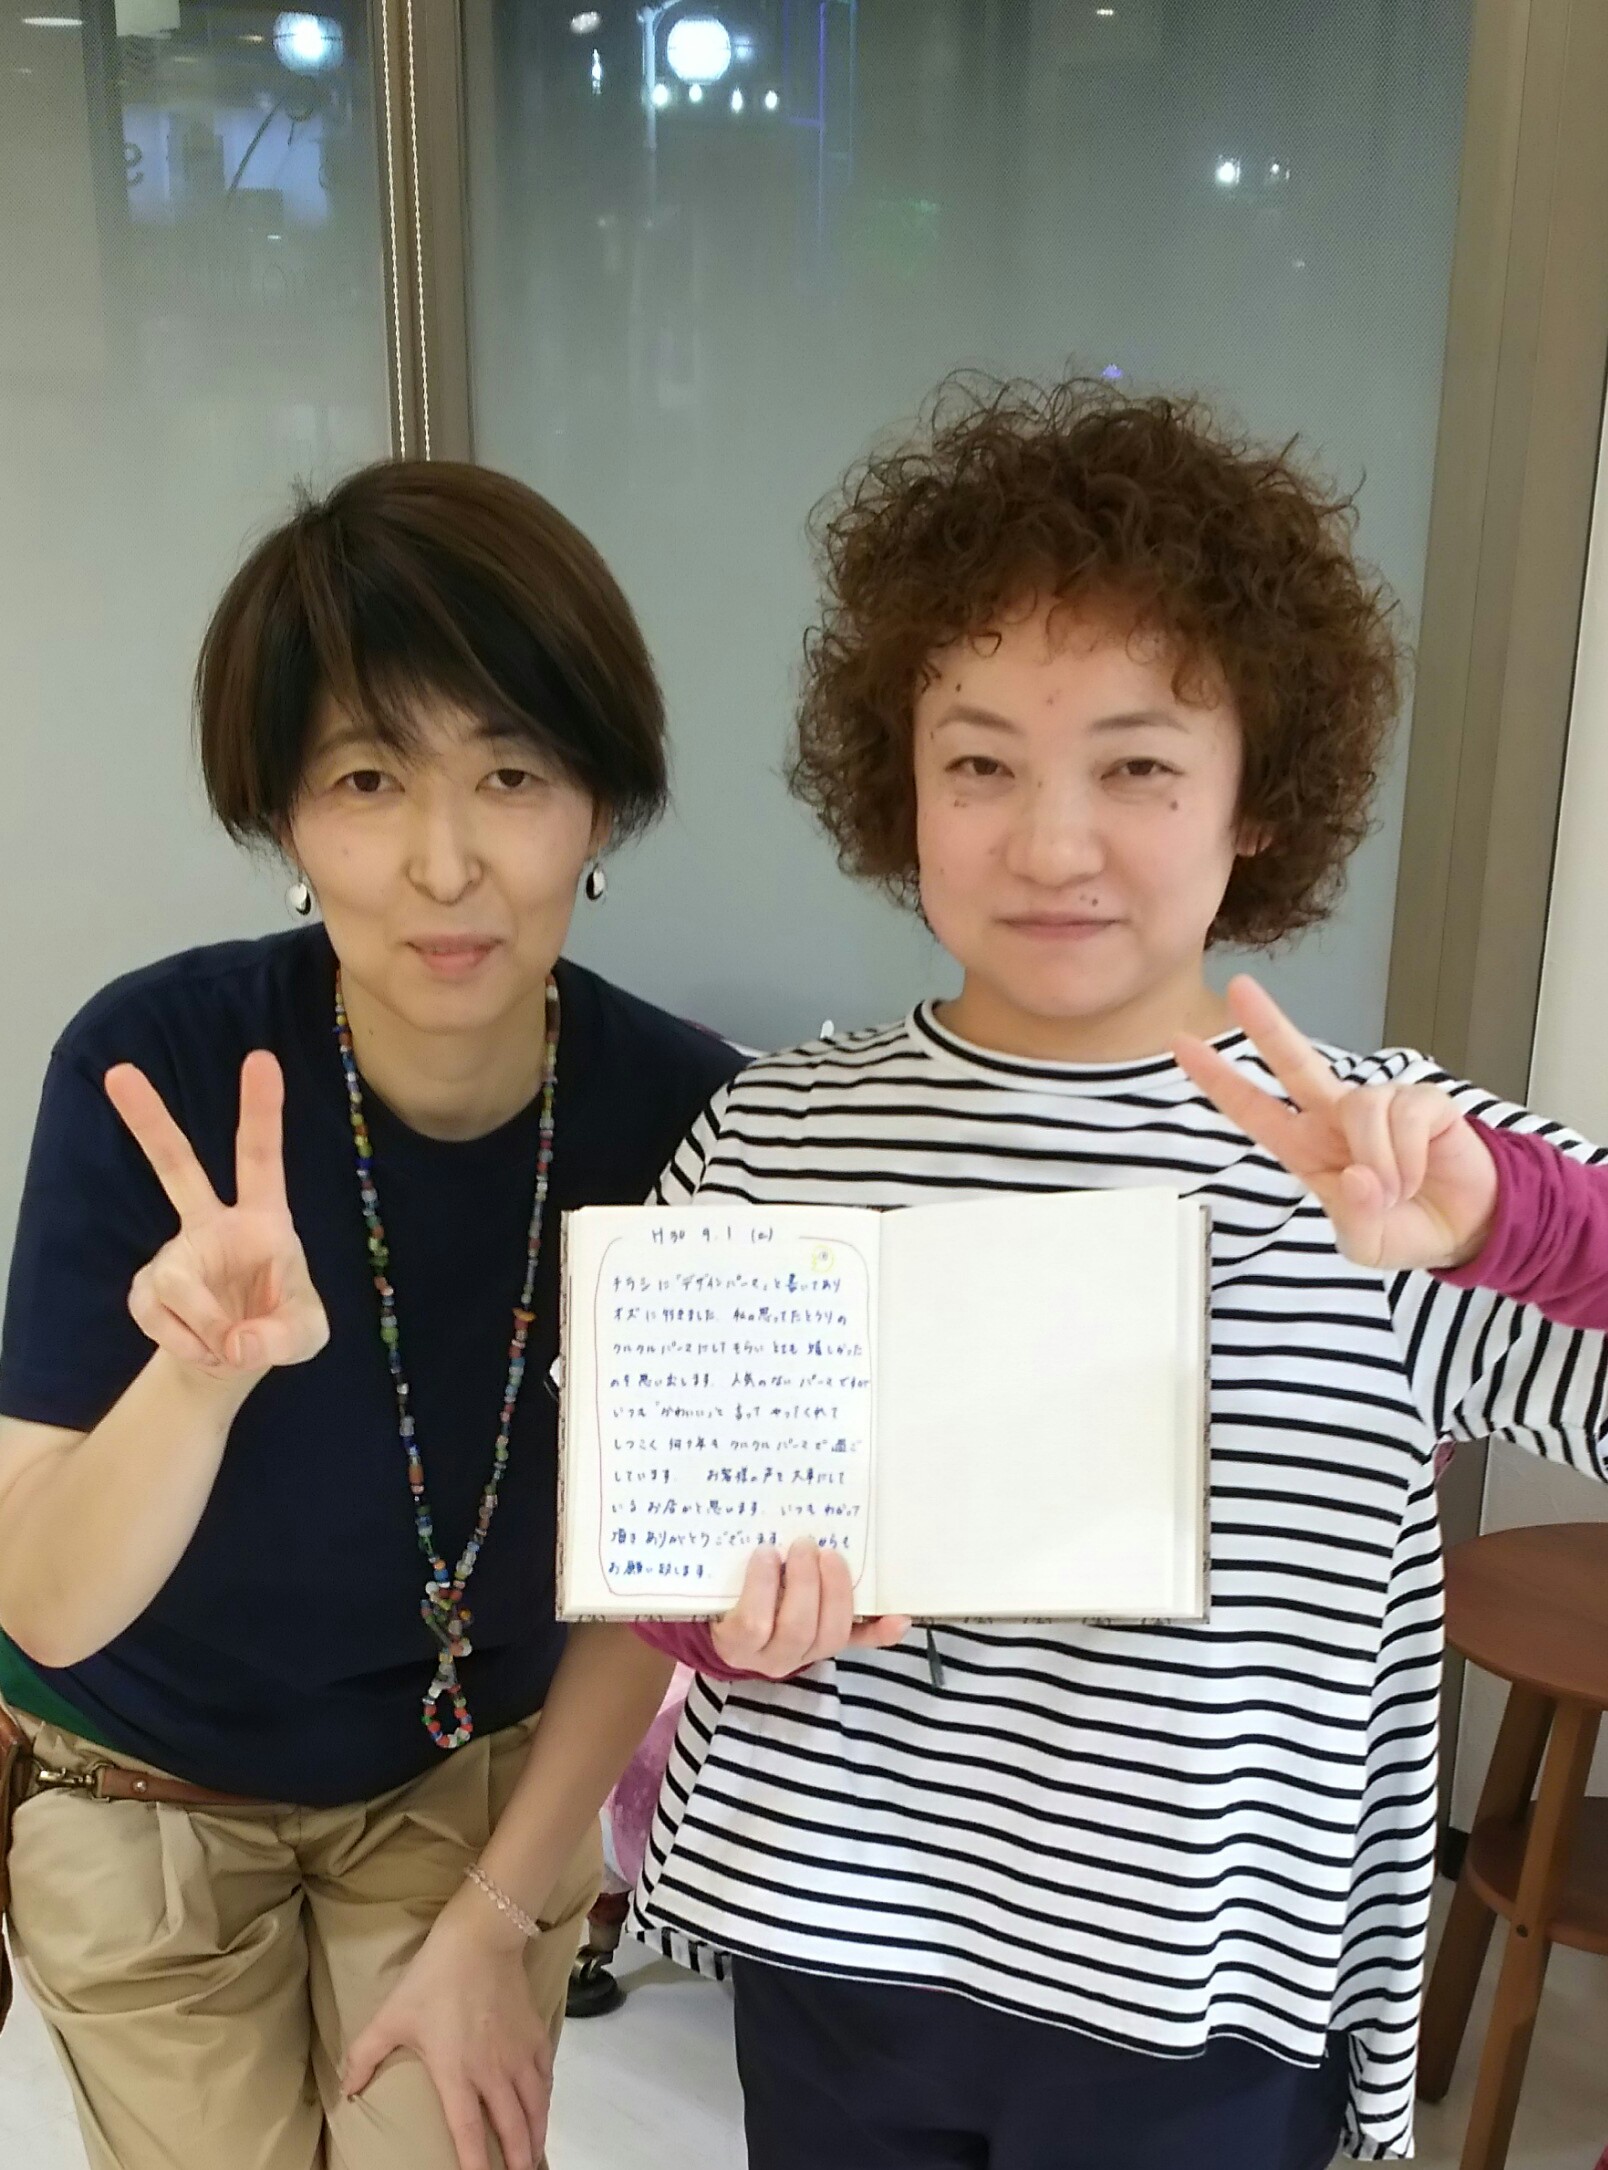 H30 9.1 (土)
チラシに「デザインパーマ」と書いてあり
オズに行きました。私の思ってたとうりの
クルクルパーマにしてもらいとても嬉しかった
のを思い出します。人気のないパーマですが
いつも「かわいい」と言ってやってくれて
しつこく何十年もクルクルパーマで過ご
しています。 お客様の声を大事にして
いるお店かと思います。いつもわかって
頂きありがとうございます。 からも
お願い致します。